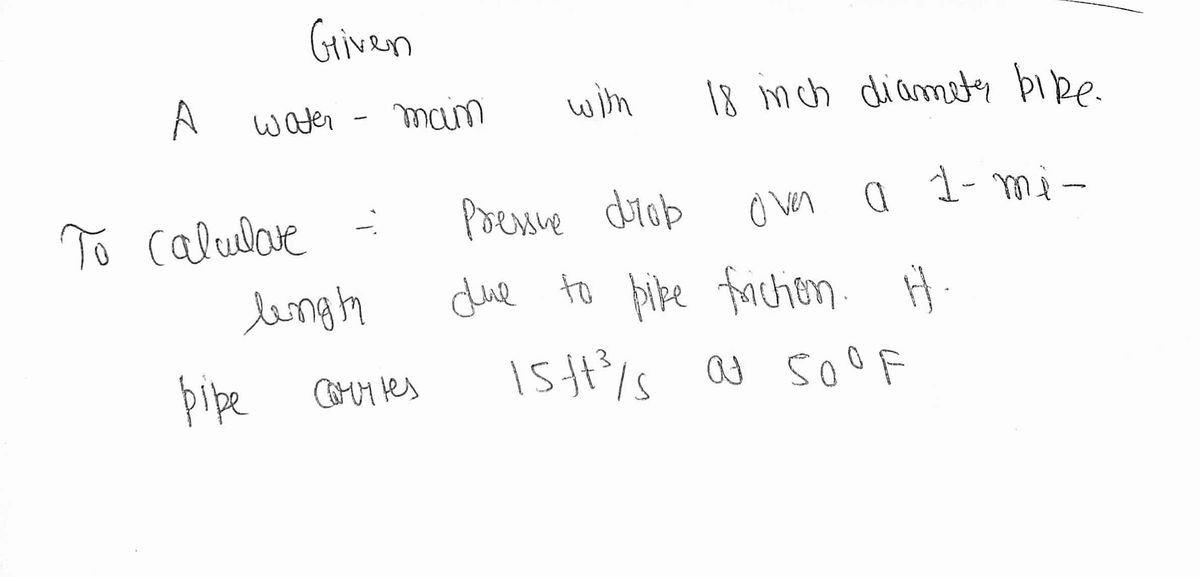 Given
A water - main with 18 inch diameter pipe.
To calculate ÷ Pressure drop over a 1-mi-
length due to pipe friction. if.
pipe carries 15 ft³/s at 50°F